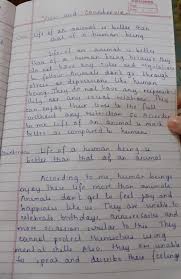 Pros and Considerations
Life of an animal is better than
that of a human being
Life of an animal is better
than of a human being because they
do not have any rules and regulations
to follow. Animals don't go through
stress or depression like human
beings. They do not have any responsi-
bility nor any social relations. They
can enjoy their lives to the full
without any restriction. So according
to me life of an animal is much
better as compared to humans.
Life of a human being is
better than that of an animal
According to me, human beings
enjoy their life more than animals.
Animals don't get to feel joy and
happiness like us. They are unable to
celebrate birthdays, anniversaries and
more occasion similar to this. They
cannot protect themselves using
mental skills. Also they are unable
to speak and describe their feelings